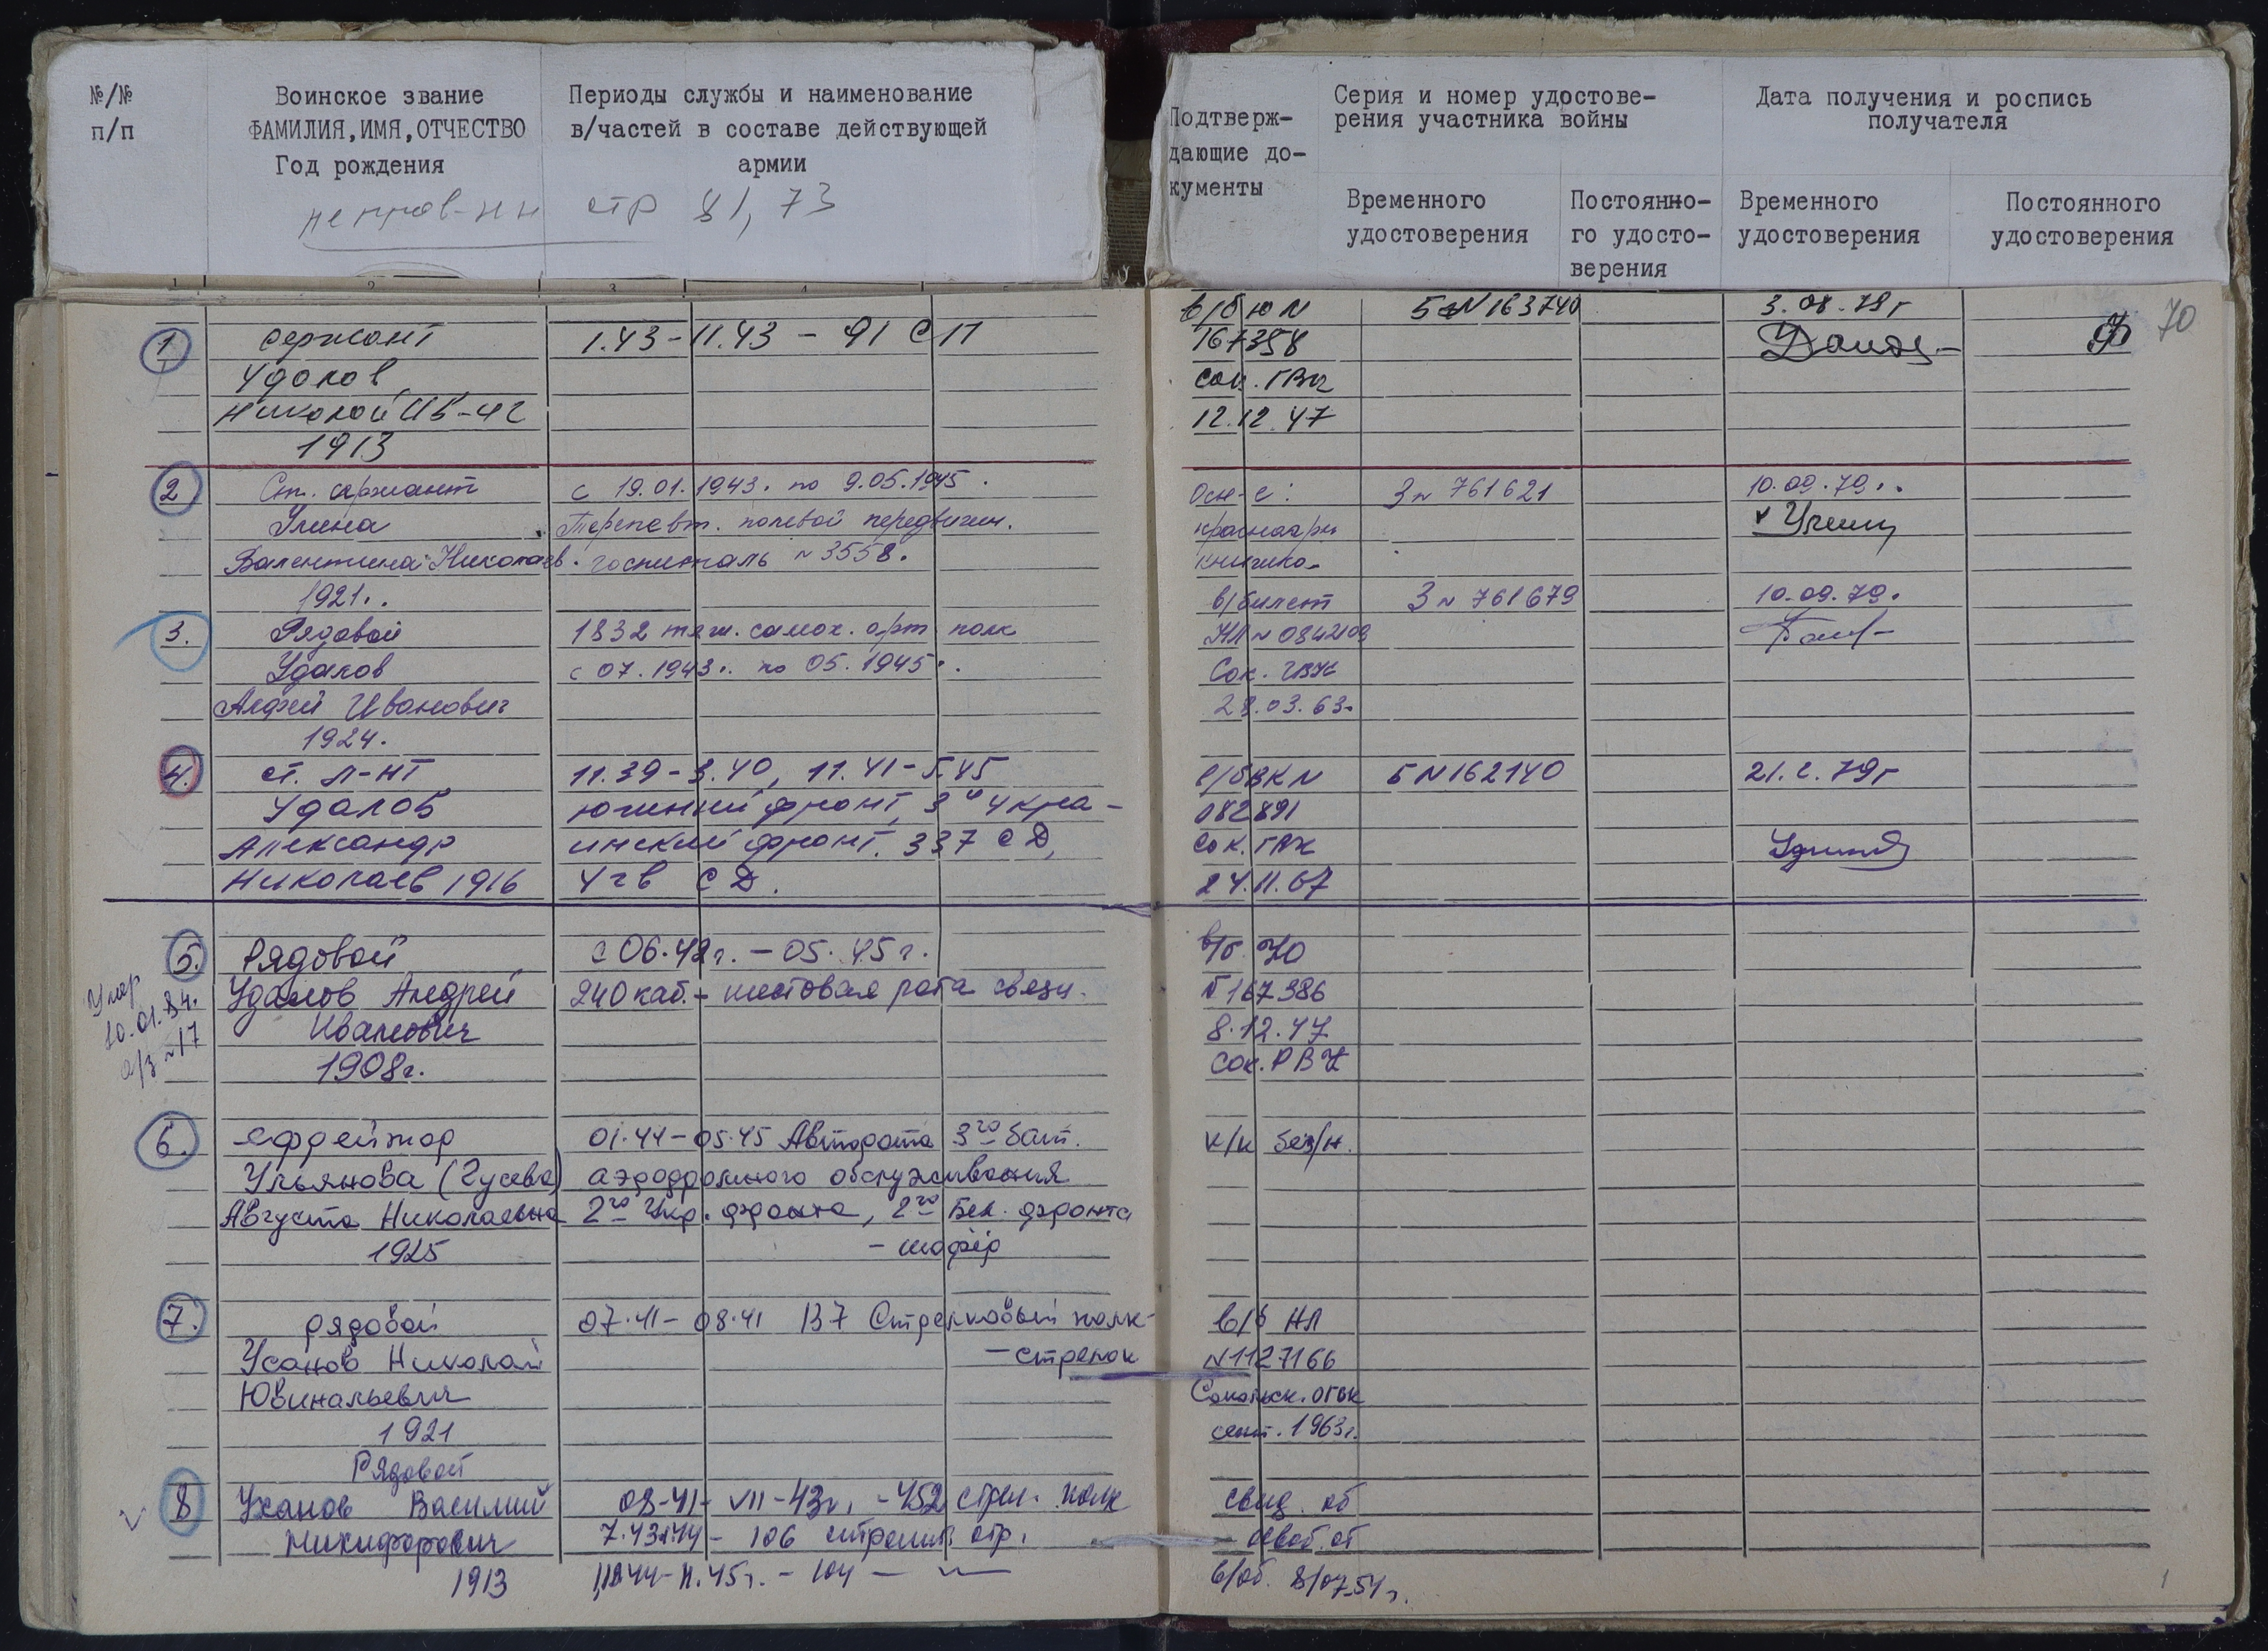 №/№
п/п
Воинское звание
ФАМИЛИЯ,ИМЯ,ОТЧЕСТВО
Год рождения
Периоды службы и наименование
в/частей в составе действующей
армии
стр 81, 73
Подтверж-
дающие до-
кументы
Серия и номер удостове-
рения участника войны
Временного
удостоверения
Постоянно-
го удосто-
верения
Дата получения и роспись
получателя
Временного
удостоверения
Постоянного
удостоверения
70
1 сержант 1.43-11.43 - 91 СП
Удалов
Николай Ив-ч
1913
в/б ю N 163740 3.08.79г
167358
12.12.47
2 Ст. сержант с 19.01.1943. по 9.05.1945.
Улина Терапевт. полевой передвижн.
Валентина Николаев. госпиталь N 3558.
1921..
Осн-е: З N 761621 10.09.79..
красноарм
книжка.
3. Рядовой 1832 тяж. самох. арт полк
Удалов с 07.1943.. по 05.1945..
Алфей Иванович
1924.
в/билет З N 761679 10.09.79.
НЛ N 0842109
Сок. ГВК
28.03.63.
4. ст. л-нт 11.39-3.40, 11.41-5.45
Удалов южный фронт, 3й укра-
Александр инский фронт. 337 СД,
Николаев 1916 4 гв СД.
Б N 162140 21.2.79г
082891
Сок. ГВК
24.11.67
5. Рядовой с 06.42г. - 05.45г.
Удалов Андрей 240 каб.- шестовая рота связи.
Иванович
1908г.
Умер
10.01.84.
а/з N 17
в/б Ю
167386
8.12.47
Сок. РВК
6. ефрейтор 01.44-05.45 Авторота 3го бат.
Ульянова (Гусева) аэродромного обслуживания
Августа Николаевна 2го Укр. фронта, 2го Бел. фронта
1925 - шофёр
к/к без/н.
7. рядовой 07.41-08.41 137 Стрелковый полк-
Усанов Николай - стрелок
Ювинальевич
1921
в/б НЛ
N 1127166
Сокольск. ОГВК
сент. 1963г.
Рядовой
8 Уханов Василий 08-41- VII-43г. - 452 стрел. полк
Никифорович 106 отр.
1913 - 104 -
свид. об
освоб. от
в/об. 8/07.54г.